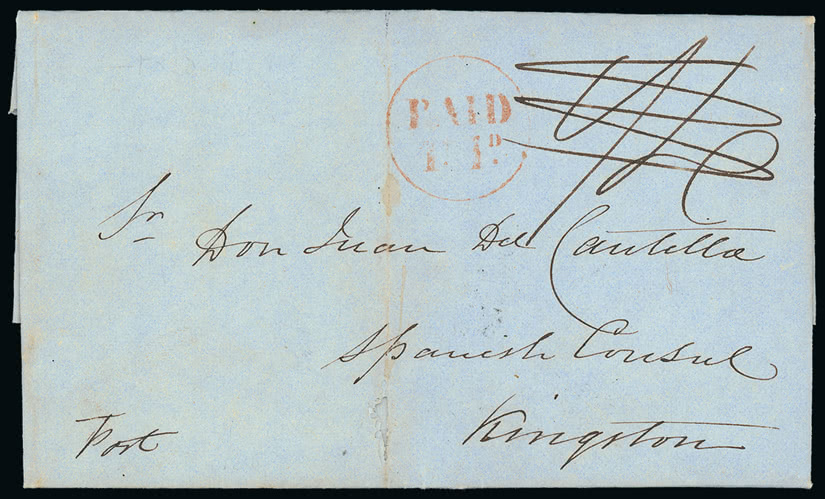 PAID
1. 1D.
Sr Don Juan Del Cautella
Spanish Consul
Kingston
Post